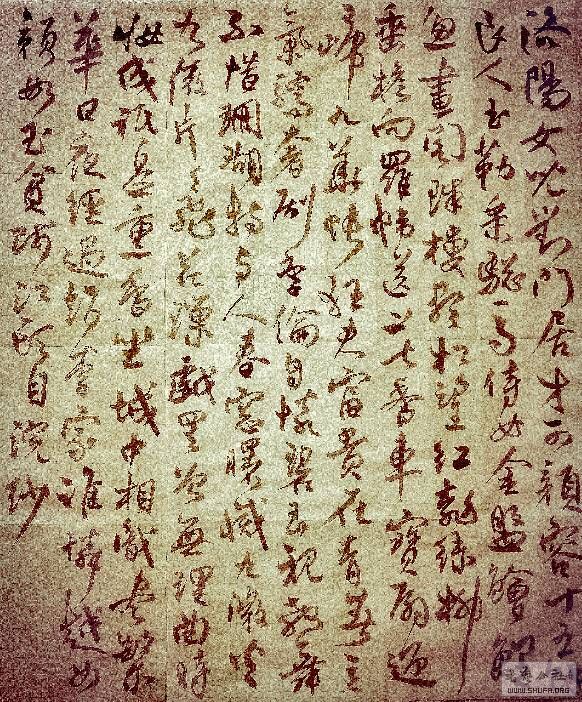 洛陽女兒對門居才可顏容十五
良人玉勒乘驄馬侍女金盤鱠鯉
魚畫閣珠樓盡相望紅桃綠柳
垂檐向羅幃送上七香車寶扇迎
歸九華帳狂夫富貴在青春意
氣驕奢劇季倫自憐碧玉親教舞
不惜珊瑚持與人春窗曙滅九微火
九微片片飛花瑣戲罷曾無理曲時
妝成祇是熏香坐城中相識盡繁
華日夜經過趙李家誰憐越女
顏如玉貧賤江頭自浣紗
WWW.SHUFA.ORG